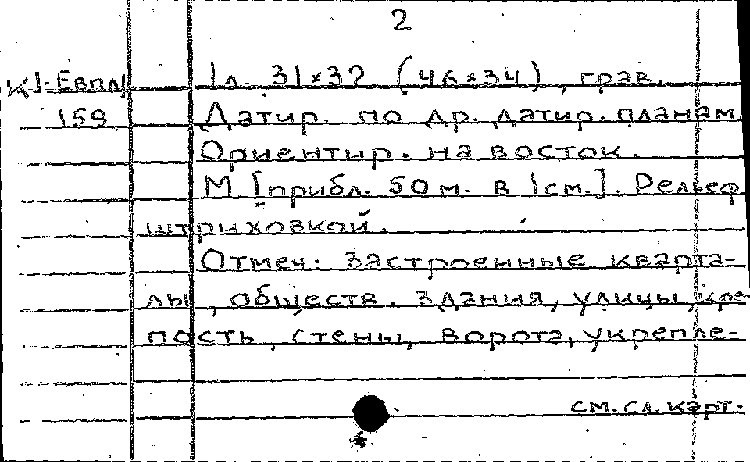 2
К1-Евпл 1л. 31×32 (46×34), грав.
159 Датир. по др. датир. планам.
Ориентир. на восток.
М [прибл. 50м. в 1см.]. Рельеф
штриховкой.
Отмеч: застроенные кварта-
лы, обществ. здания, улицы, кре-
пость, стены, ворота, укрепле-
см. сл. карт.